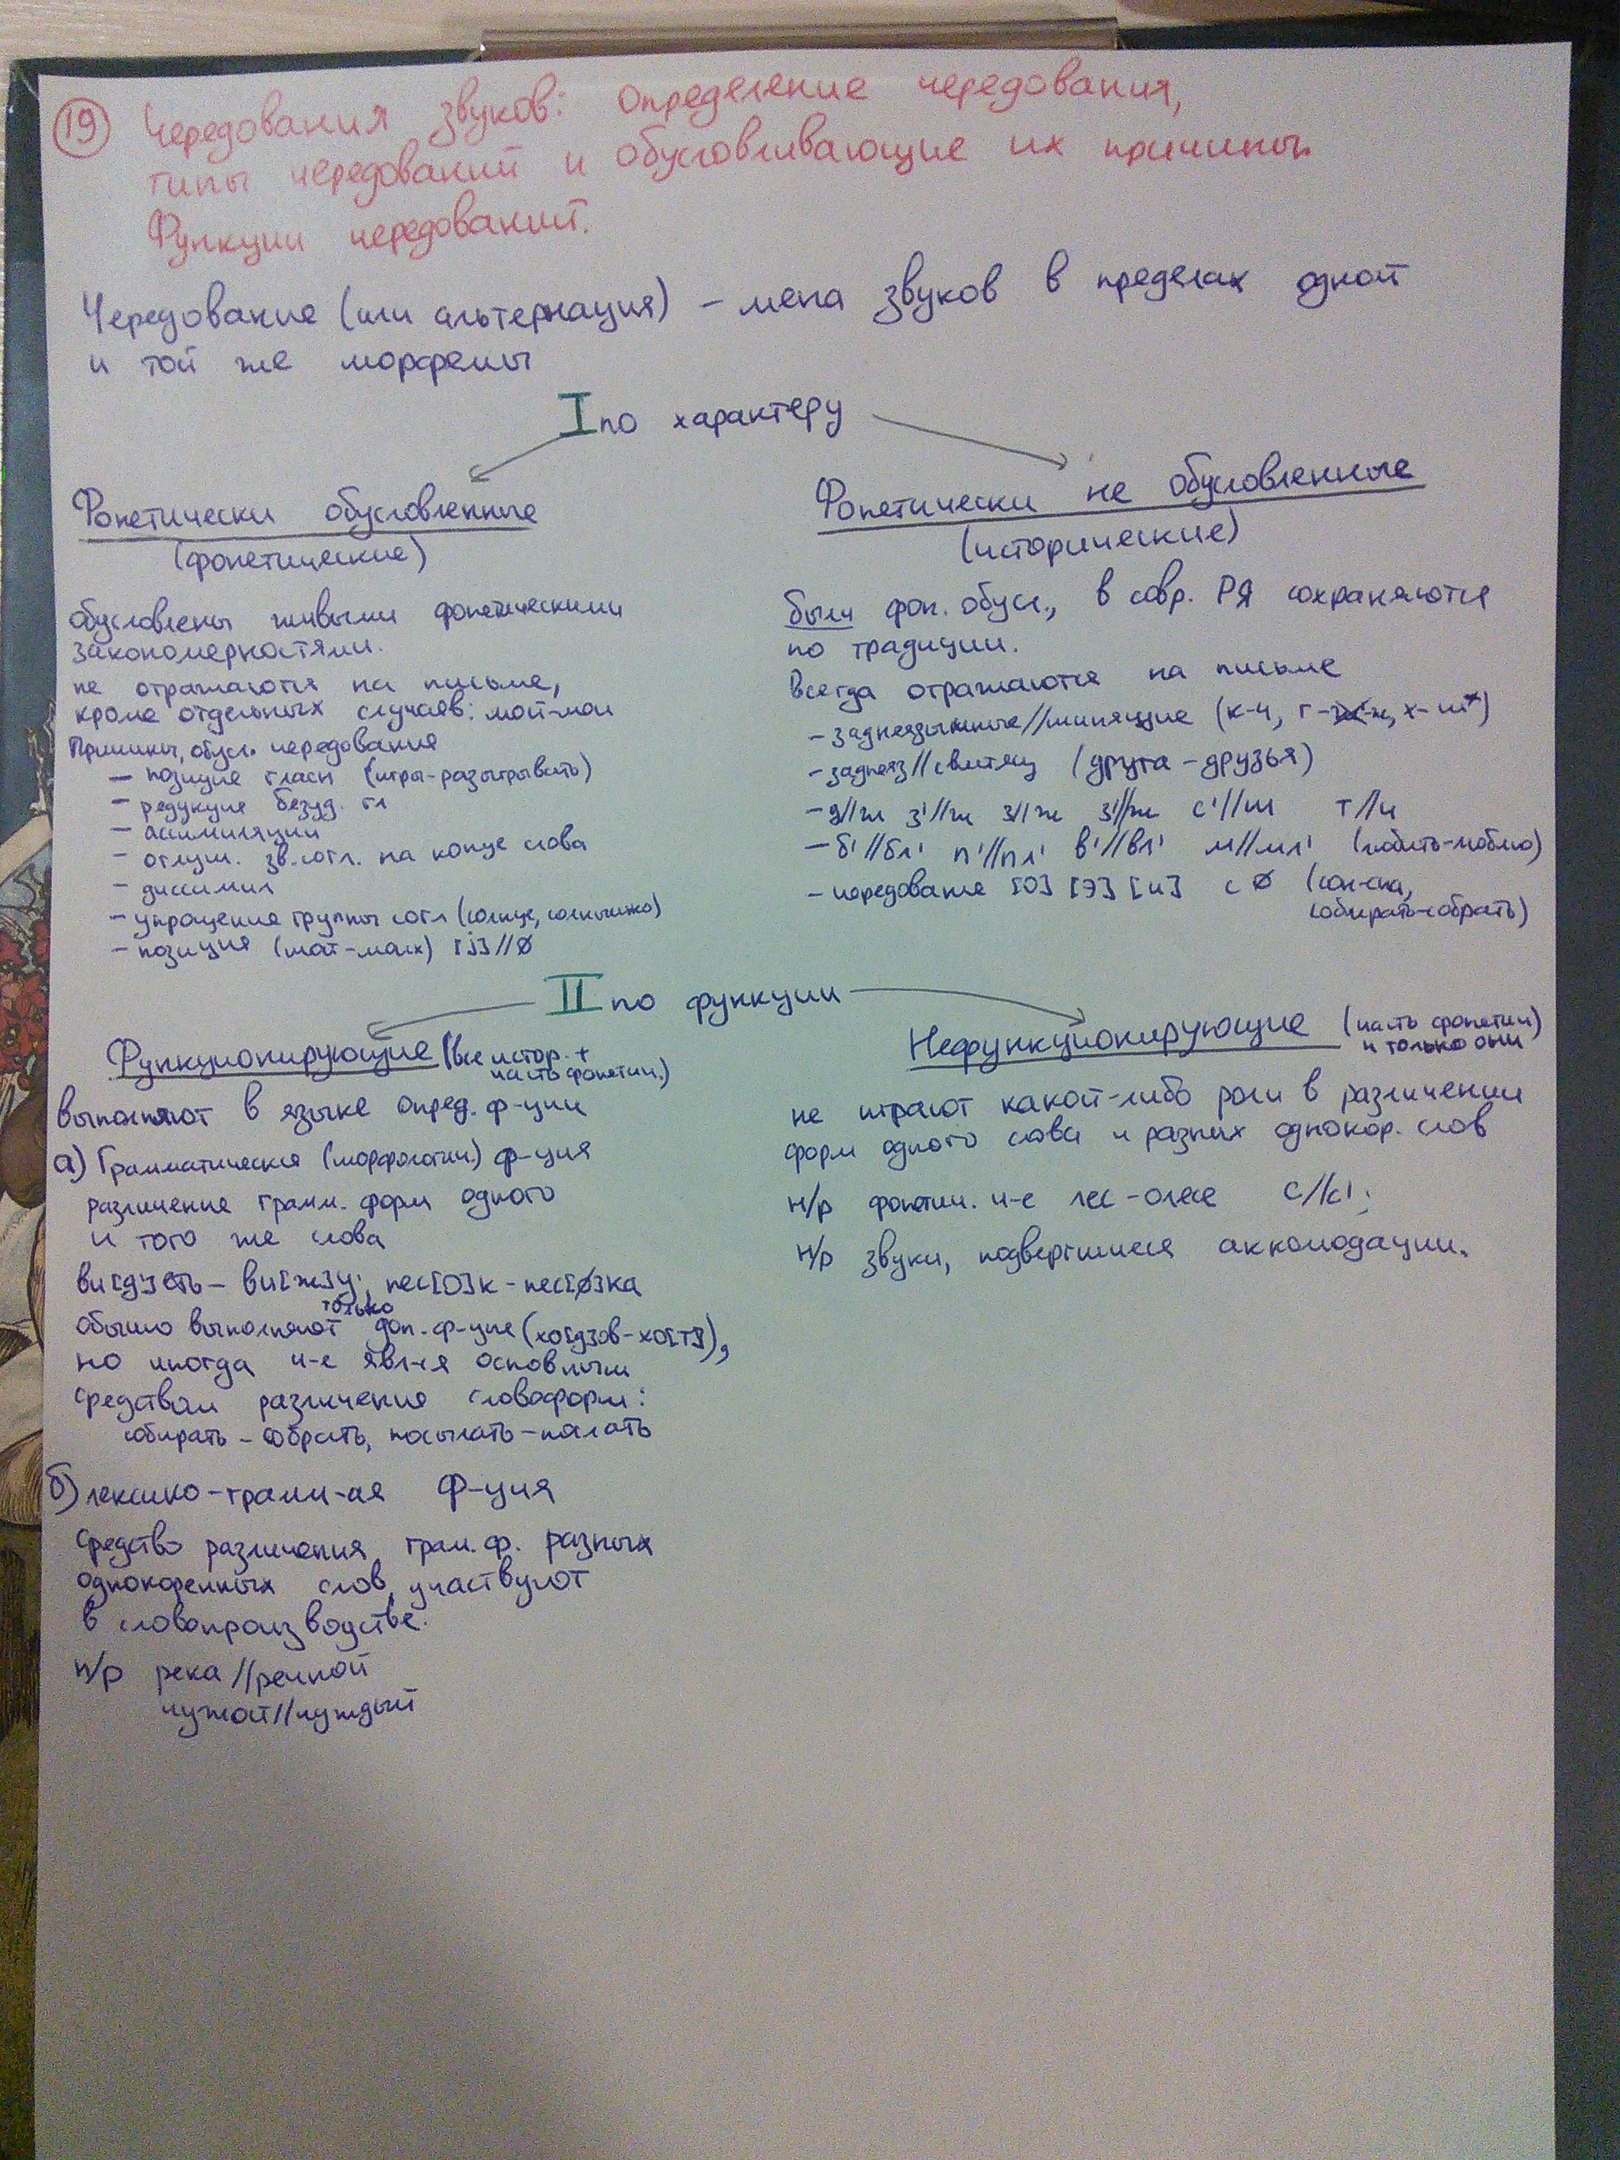 19 Чередования звуков: определение чередования,
типы чередований и обусловливающие их причины.
Функции чередований.
Чередование (или альтернация) – мена звуков в пределах одной
и той же морфемы
I по характеру
Фонетически обусловленные
(фонетические)
обусловлены живыми фонетическими
закономерностями.
не отражаются на письме,
кроме отдельных случаев: мой-мои
Причины, обусл. чередования
– позиция гласн (игры-разыгрывать)
– редукция безуд. гл
– ассимиляции
– оглуш. зв. согл. на конце слова
– диссимил
– упрощение группы согл (солнце, солнышко)
– позиция (мой-моих) [j]//ø
Фонетически не обусловленные
(исторические)
были фон. обусл., в совр. РЯ сохраняются
по традиции.
Всегда отражаются на письме
– заднеязычные//шипящие (к-ч, г-ж, х-ш)
– заднеяз//свистящ (друга-друзья)
– д//ж з'//ж з//ж з'//ж с'//ш т//ч
– б'//бл' п'//пл' в'//вл' м//мл' (любить-люблю)
– чередование [о] [э] [и] с ø (сон-сна,
собирать-собрать)
II по функции
Функционирующие (все истор. +
часть фонетич.)
выполняют в языке опред. ф-ции
а) Грамматическая (морфологич.) ф-ция
различение грамм. форм одного
и того же слова
ви[д']еть – ви[ж]у; пес[о]к – пес[ø]ка
обычно выполняют только доп. ф-цию (хо[д]ов-хо[т]),
но иногда ч-е явл-ся основным
средством различения словоформ:
собирать – собрать, посылать – послать
б) лексико-грамм-ая ф-ция
средство различения грам. ф. разных
однокоренных слов, участвуют
в словопроизводстве.
н/р река//речной
чужой//чуждый
Нефункционирующие (часть фонетич)
и только они
не играют какой-либо роли в различении
форм одного слова и разных однокор. слов
н/р фонетич. ч-е лес – о лесе с//с';
н/р звуки, подвергшиеся аккомодации.